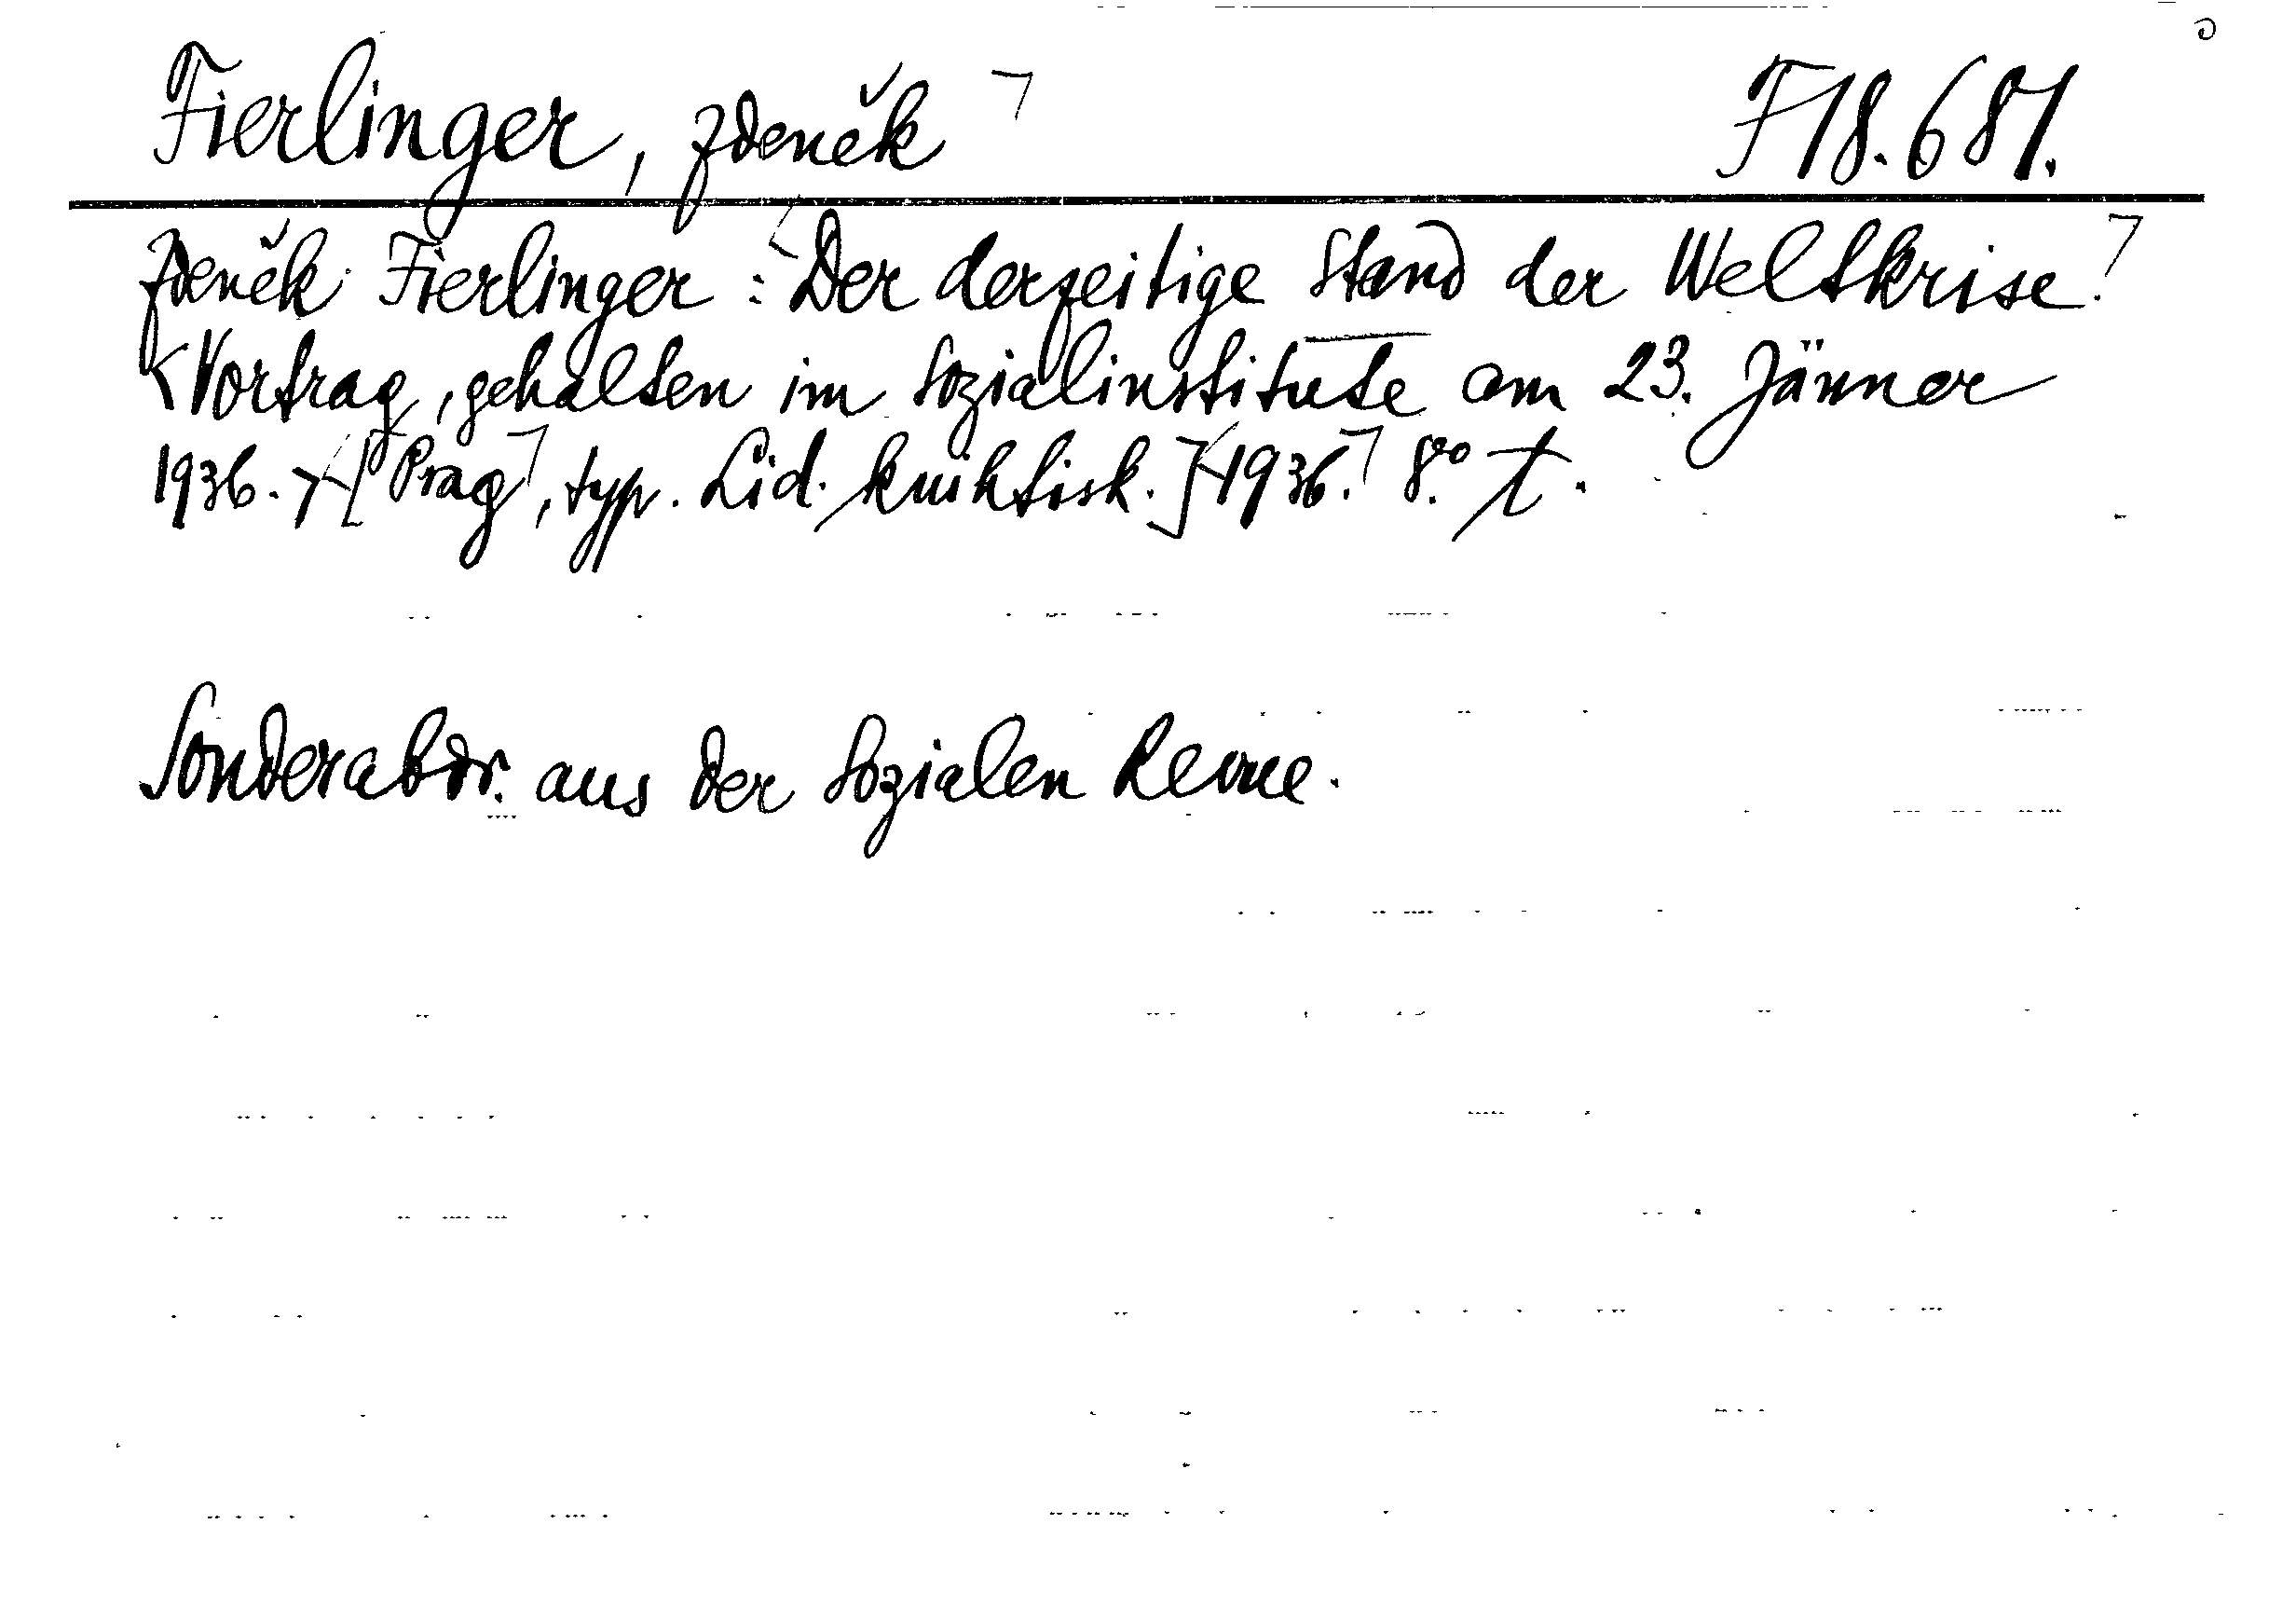 Fierlinger, Zdeněk F 18.681.
Zdeněk Fierlinger: Der derzeitige Stand der Weltkrise.
Vortrag, gehalten im Sozialinstitute am 23. Jänner
1936. [Prag, typ. Lid. knihtisk.] 1936. 8° t.
Sonderabdr. aus der Sozialen Revue.